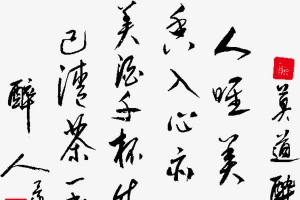 莫道醉
人唯美
香入心亦
美酒千杯
己清茶一
醉人